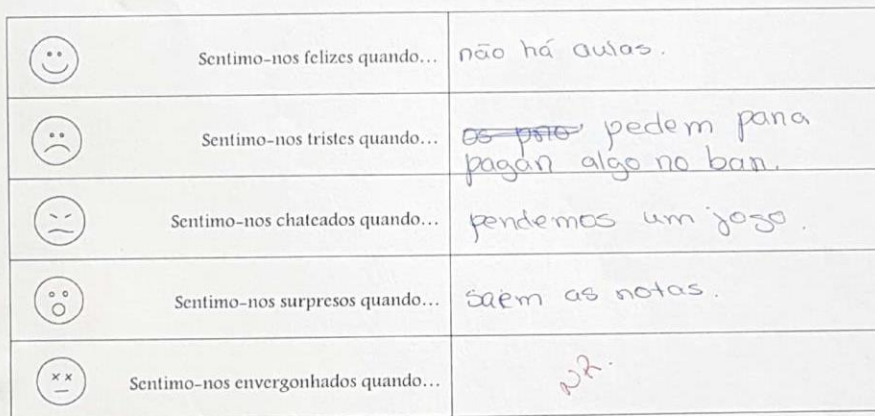 Sentimo-nos felizes quando... não há aulas.
Sentimo-nos tristes quando... pedem para
pagar algo no bar.
Sentimo-nos chateados quando... perdemos um jogo.
Sentimo-nos surpresos quando... saem as notas.
Sentimo-nos envergonhados quando... NR.